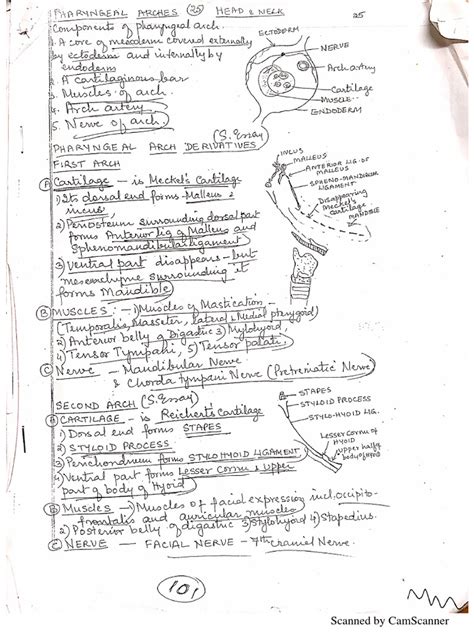 PHARYNGEAL ARCHES (25) HEAD & NECK
25
Components of pharyngeal arch.
1. A core of mesoderm covered externally
by ectoderm and internally by
endoderm
2. A cartilaginous bar
3. Muscles of arch.
4. Arch artery
5. Nerve of arch.
ECTODERM
NERVE
Arch artery
Cartilage
MUSCLE
ENDODERM
(S. Essay)
PHARYNGEAL ARCH DERIVATIVES
FIRST ARCH
A Cartilage - is Meckel's Cartilage
1) Its dorsal end forms - Malleus &
incus
2) Periosteum surrounding dorsal part
forms Anterior lig of Malleus and
Sphenomandibular ligament
3) Ventral part disappears - but
mesenchyme surrounding it
forms Mandible
INCUS
MALLEUS
ANTERIOR LIG. OF
MALLEUS
SPHENO-MANDIBULAR
LIGAMENT
Disappearing
Meckel's
Cartilage
MANDIBLE
B MUSCLES - 1) Muscles of Mastication -
(Temporalis, Masseter, lateral & Medial pterygoid)
2) Anterior belly of Digastric 3) Mylohyoid,
4) Tensor Tympani, 5) Tensor palati
C Nerve - Mandibular Nerve
& Chorda tympani Nerve (Pretrematic Nerve)
SECOND ARCH (S. Essay)
A CARTILAGE - is Reichert's Cartilage
1) Dorsal end forms STAPES
2) STYLOID PROCESS
3) Perichondrium forms STYLOHYOID LIGAMENT
4) Ventral part forms Lesser Cornu & Upper
part of body of Hyoid
STAPES
STYLOID PROCESS
STYLO-HYOID LIG.
Lesser Cornu of
HYOID
upper half of
body of hyoid
B Muscles - 1) Muscles of facial expression incl. occipito-
frontalis and auricular muscles
2) Posterior belly of digastric 3) Stylohyoid 4) Stapedius.
C NERVE - FACIAL NERVE - 7th cranial Nerve.
101
Scanned by CamScanner